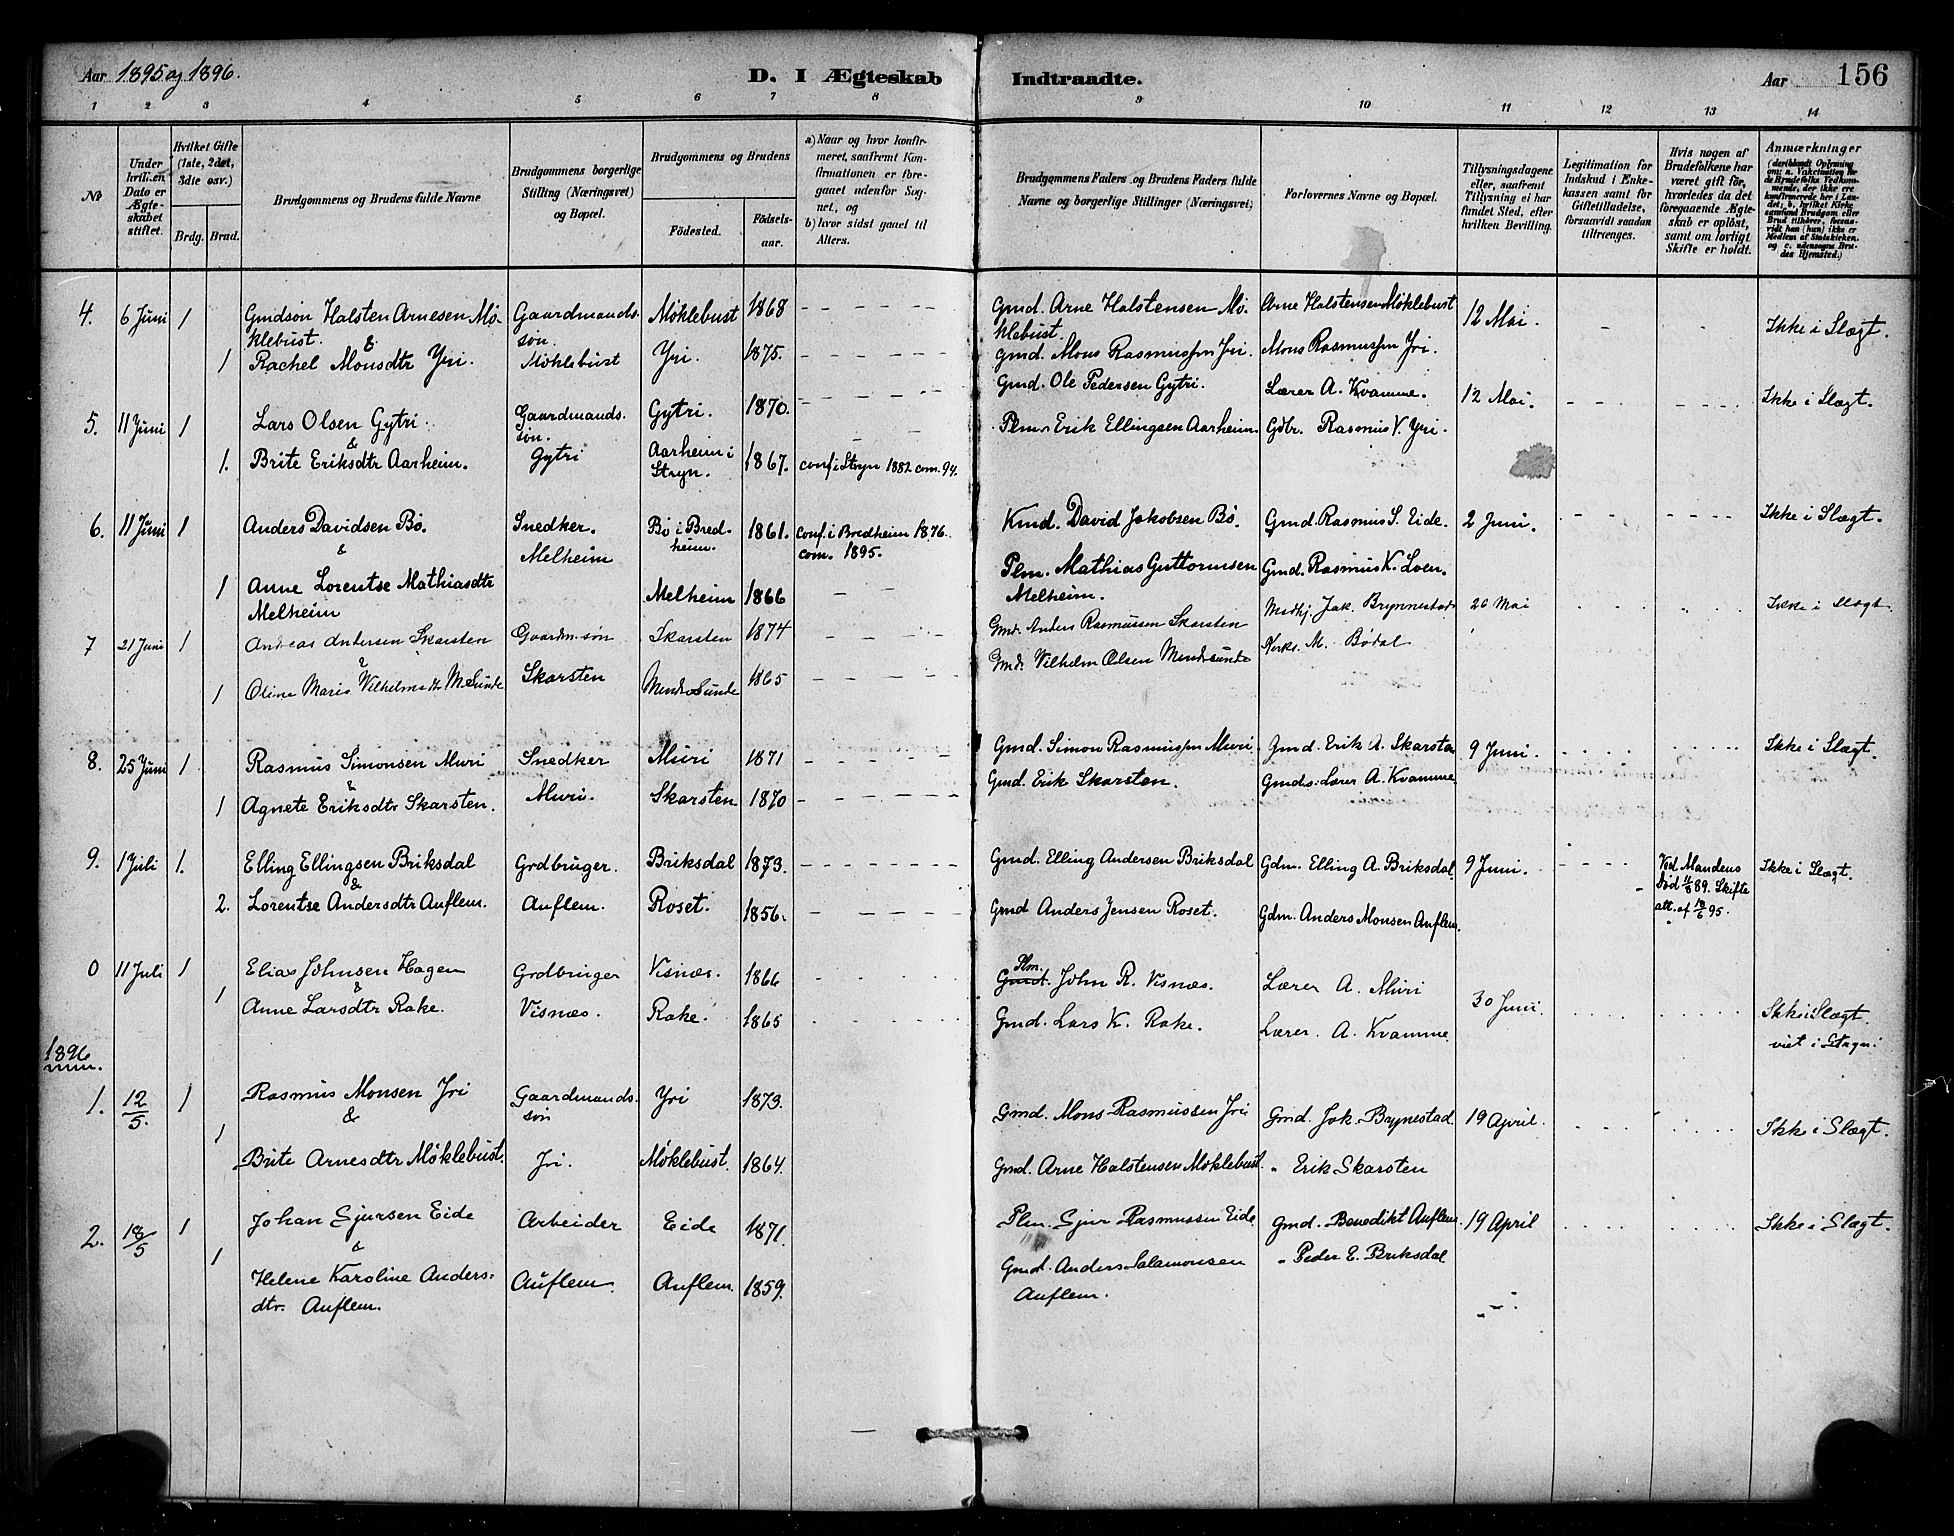 Aar 1895 og 1896.
D. I Ægteskab Indtraadte.
Aar 156
1 2 3 4 5 6 7 8 9 10 11 12 13 14
No
Under hvilken Dato er Ægteskabet stiftet.
Hvilket Gifte (1ste, 2det, 3die osv.)
Brdg. Brud.
Brudgommens og Brudens fulde Navne
Brudgommens borgerlige Stilling (Næringsvei) og Bopæl.
Brudgommens og Brudens
Födested. Födselsaar.
a) Naar og hvor konfirmeret, saafremt Konfirmationen er foregaaet udenfor Sognet, og
b) hvor sidst gaaet til Alters.
Brudgommens Faders og Brudens Faders fulde Navne og borgerlige Stillinger (Næringsvei)
Forlovernes Navne og Bopæl.
Tillysningsdagene eller, saafremt Tillysning ei har fundet Sted, efter hvilken Bevilling.
Legitimation for Indskud i Enkekassen samt for Giftetilladelse, forsaavidt saadan tiltrænges.
Hvis nogen af Brudefolkene har været gift för, hvorledes da det foregaaende Ægteskab er oplöst, samt om lovligt Skifte er holdt.
Anmærkninger (deriblandt Oplysning om: a. Vaksination for de Brudefolks Vedkommende, der ikke ere konfirmerede her i Landet; b. hvilket Kirkesamfund Brudgom eller Brud tilhörer, forsaavidt han (hun) ikke er Medlem af Statskirken, og c. udensogns Brudes Hjemsted.)
4. 6 Juni 1 Gmdsøn Halsten Arnesen Møklebust. Gaardmandssøn. Møklebust 1868 Gmd. Arne Halstensen Møklebust. Arne Halstensen Møklebust 12 Mai. Ikke i Slægt.
&
1 Rachel Monsdtr Yri. Møklebust Yri. 1875. Gmd. Mons Rasmussen Yri. Mons Rasmussen Yri.
5. 11 Juni 1 Lars Olsen Gytri. Gaardmandssøn. Gytri. 1870. Gmd. Ole Pedersen Gytri. Lærer A. Kvamme. 12 Mai. Ikke i Slægt.
&
1. Brite Eriksdtr Aarheim. Gytri Aarheim i Stryn. 1867. conf. i Stryn 1882 com. 94. Plm. Erik Ellingsen Aarheim. Gdbr. Rasmus V. Yri.
6. 11 Juni 1 Anders Davidsen Bø. Snedker. Bø i Bredheim. 1861. conf. i Bredheim 1876. com. 1895. Kmd. David Jakobsen Bø. Gmd. Rasmus S. Eide. 2 Juni. Ikke i Slægt.
&
1 Anne Lorentse Mathiasdtr Melheim Melheim Melheim 1866 Plm. Mathias Guttormsen Melheim. Gmd. Rasmus K. Loen.
7 21 Juni 1 Andreas Andersen Skarsten Gaardm.søn Skarsten 1874 Gmd. Anders Rasmussen Skarsten Jak. Brynnestad 26 Mai Ikke i Slægt
&
1 Oline Marie Wilhelmsdtr M.Sunde Skarsten 1865 Gmd. Vilhelm Olsen M. Bødal
8. 25 Juni 1 Rasmus Simonsen Muri Snedker Muri 1871 Gmd. Simon Rasmussen Muri Gmd. Erik A. Skarsten 9 Juni. Ikke i Slægt.
&
1 Agnete Eriksdtr Skarsten. Muri. Skarsten 1870 Gmd. Erik Skarsten. Gmds. Lærer A. Kvamme
9. 1 Juli 1. Elling Ellingsen Briksdal Grdbruger. Briksdal 1873. Gmd. Elling Andersen Briksdal Gdm. Elling A. Briksdal. 9 Juni. Ved Mandens Død 11/8 89. Skifte att. af 18/6 95. Ikke i Slægt.
&
2. Lorentse Andersdtr Auflem. Auflem. Roset. 1856. Gmd Anders Jensen Roset. Gdm. Anders Monsen Auflem.
0 11 Juli 1 Elias Johnsen Hagen Grdbruger Visnæs. 1866 Plm. John R. Visnæs. Lærer A. Muri 30 Juni. Ikke i Slægt. viet i Stryn.
&
1 Anne Larsdtr Rake. Visnæs. Rake. 1865 Gmd. Lars K. Rake. Lærer A. Kvamme.
1896
1. 12/5. 1 Rasmus Monsen Yri Gaardmandssøn Yri 1873. Gmd. Mons Rasmussen Yri Gmd. Jak. Brynestad 19 April. Ikke i Slægt.
&
1 Brite Arnesdtr Møklebust. Yri. Møklebust. 1864. Gmd. Arne Halstensen Møklebust. " Erik Skarsten
2. 18/5 1 Johan Sjursen Eide Arbeider Eide 1871. Plm. Sjur Rasmussen Eide Gmd. Benedikt Auflem 19 April Ikke i Slægt.
&
1 Helene Karoline Andersdtr. Auflem. Auflem. Auflem. 1859. Gmd. Anders Salamonsen Auflem. " Peder E. Briksdal